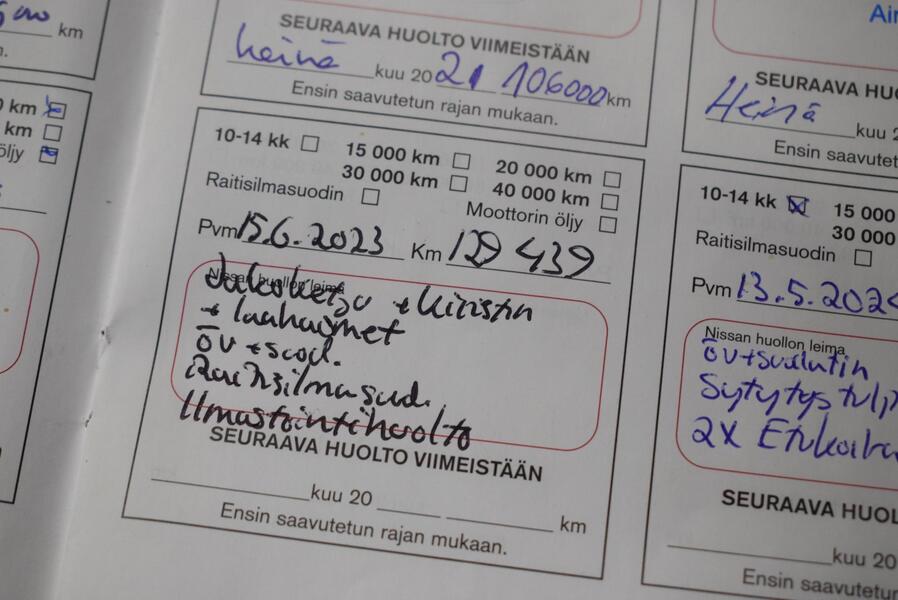 km
SEURAAVA HUOLTO VIIMEISTÄÄN
heinä kuu 2021 106000 km
Ensin saavutetun rajan mukaan.
km
km
öljy
10-14 kk 15 000 km 20 000 km
30 000 km 40 000 km
Raitisilmasuodin Moottorin öljy
Pvm 15.6.2023 Km 129 439
Nissan huollon leima
Jakoketju + kiristin
+ laahaimet
öv + suod.
Raitisilmasuod.
Ilmastointihuolto
SEURAAVA HUOLTO VIIMEISTÄÄN
kuu 20 km
Ensin saavutetun rajan mukaan.
SEURAAVA
Heinä kuu
Ensin
10-14 kk 15 000
30 000
Raitisilmasuodin
Pvm 13.5.202
Nissan huollon leima
öv + suodatin
SEURAAVA
kuu 20
Ensin saavutetun